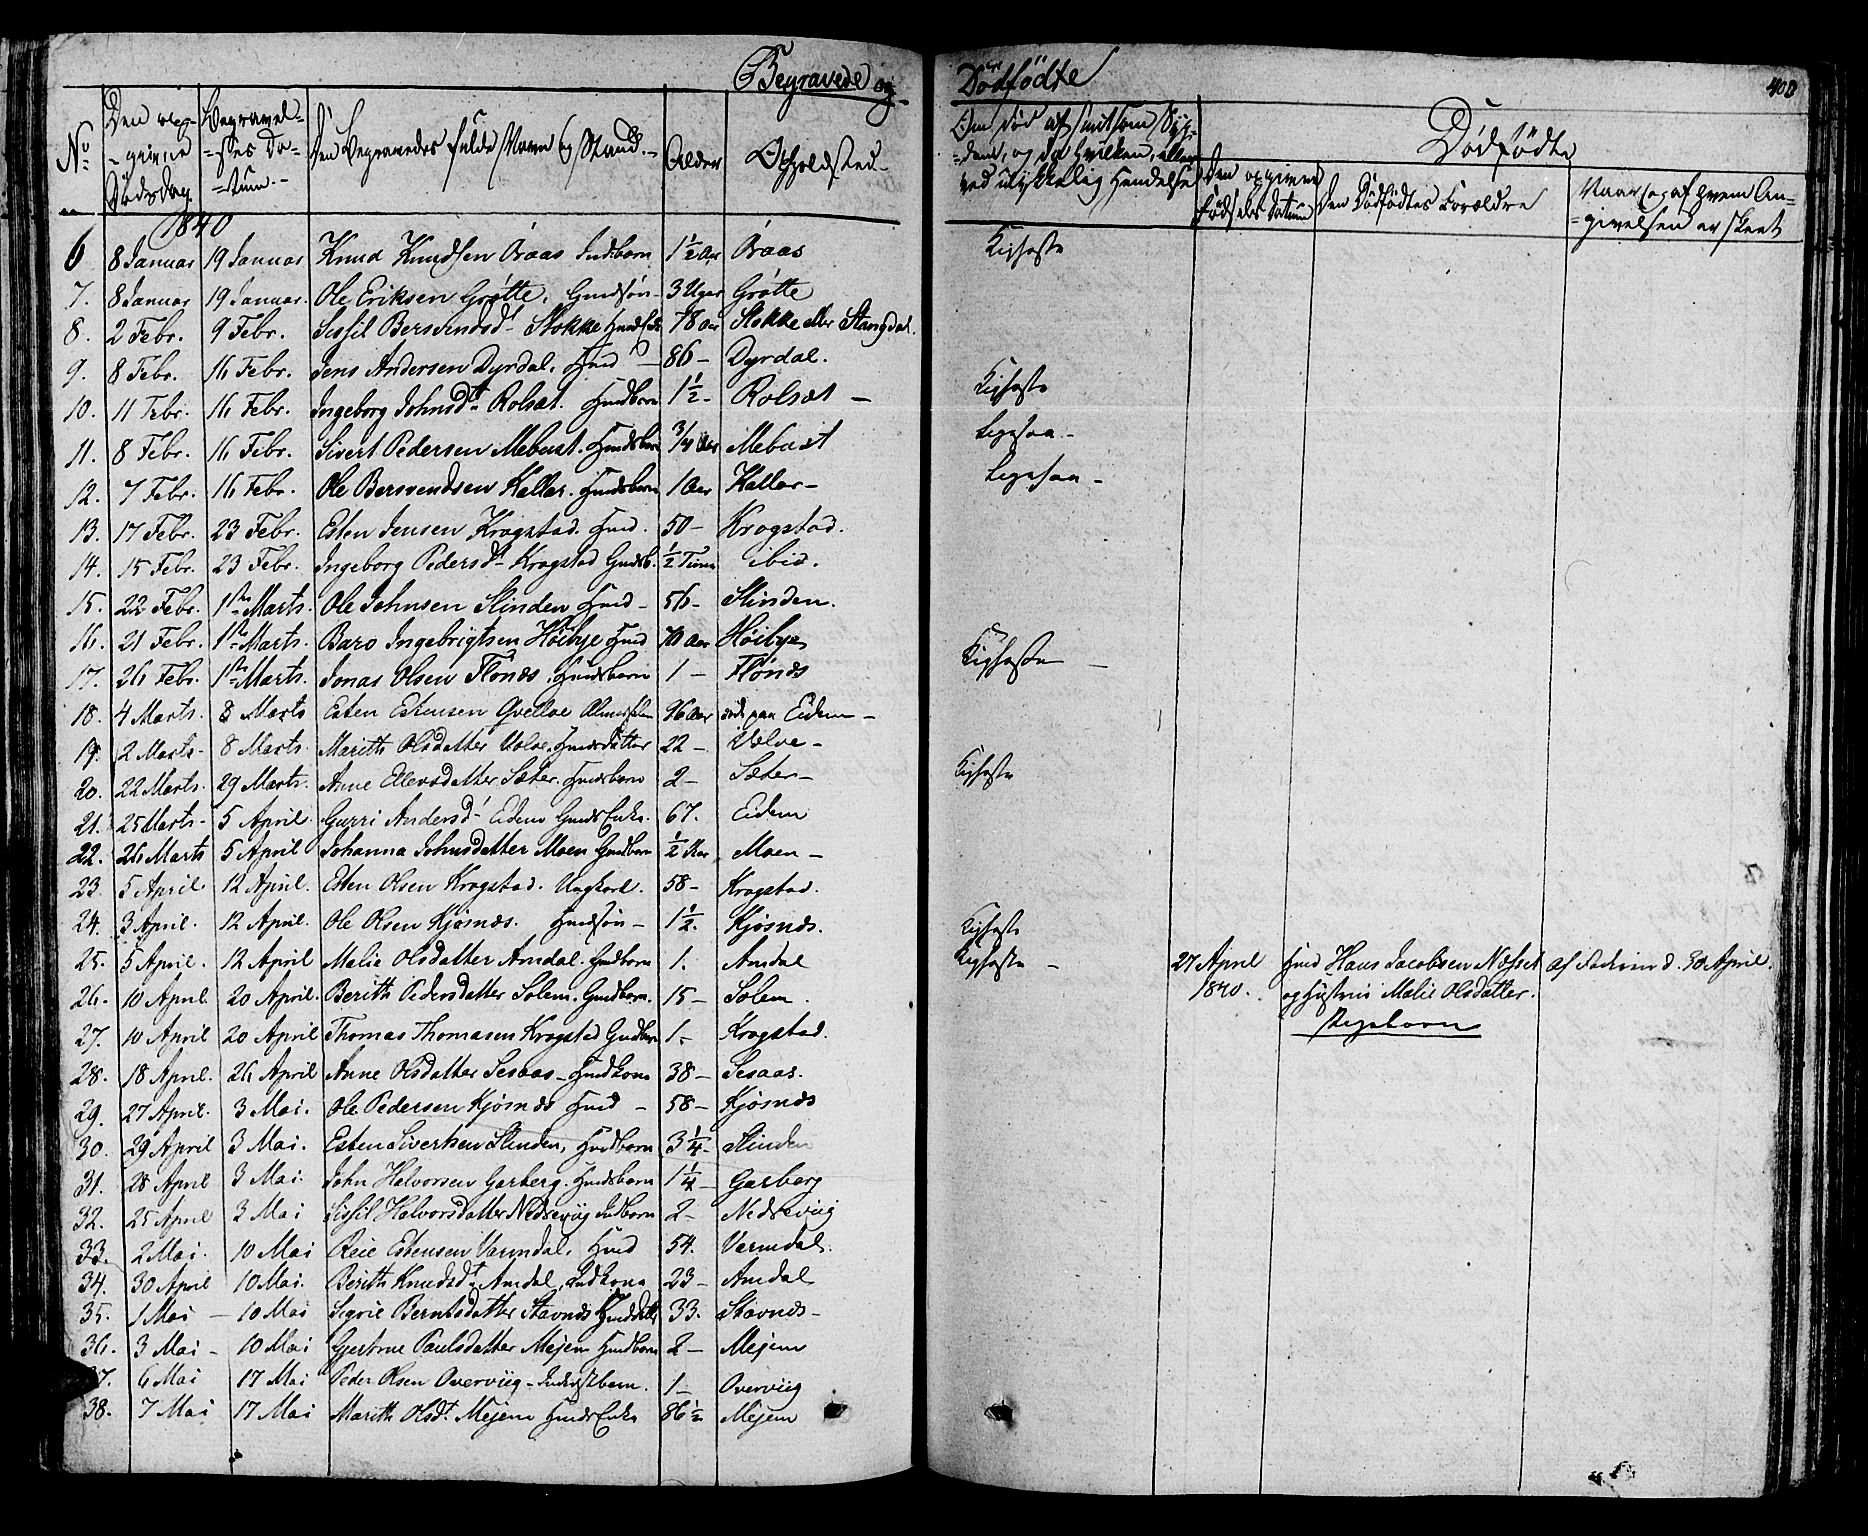 Begravede og
Dödfödte
408
No
Den opgivne Dödsdag.
Begravelsses Datum.
Den Begravedes fulde Navn og Stand.
Alder
Opholdsted
Om död af smitsom Sygdom, og da hvilken, eller ved ulykkelig Hendelse
Dödfödte
Den opgivne Födsels Datum
Den Dödfödtes Forældre
Naar og af hvem Angivelsen er skeet
1840
6 8 Januar 19 Januar Knud Knudsen Öraas Indbarn 1½ Aar Öraas Kighoste
7. 8 Januar 19 Januar. Ole Eriksen Grötte, Gmdsön 3 Uger Grötte
8. 2 Febr. 9 Febr. Sissil Bersvendsd. Stokke 78 Aar Stokke eller Stangdal.
9. 8 Febr. 16 Febr. Jens Andersen Dyrdal. Hmd 86 Dyrdal.
10. 11 Febr. 16 Febr. Ingeborg Johnsd. Rolset. Hmdbarn 1½ Rolset Kighoste
11. 8 Febr. 16 Febr. Sivert Pedersen Mebust. Hmdsbarn 3/4 Aar Mebust Ligesaa
12. 7 Febr. 16 Febr. Ole Bersvendsen Kallar. Hmdsbarn 1 Aar Kallar Ligesaa
13. 17 Febr. 23 Febr. Esten Jensen Kragstad. Hmd. 50 Kragstad.
14. 15 Febr. 23 Febr. Ingeborg Pedersd. Kragstad Gmdsb. ½ Time ibid.
15. 22 Febr. 1ste Marts. Ole Johnsen Slinden Hmd 56 Slinden.
16. 21 Febr. 1ste Marts. Baro Ingebrigtsen Höibye Hmd 70 Aar Höibye
17. 26 Febr. 1ste Marts. Jonas Olsen Flönes. Hmdsbarn 1 Flönes Kighoste
18. 4 Marts. 8 Marts Esten Estensen Qvelloe 96 Aar död paa Eidem
19. 2 Marts 8 Marts Marith Olsdatter Uglve. Hmdsdatter 22
20. 22 Marts. 29 Marts. Anne Ellevsdatter Sæter. Hmdsbarn 2 Sæter Kighoste
21. 25 Marts 5 April. Gurri Andersd. Eidem Gmds Enke. 67. Eidem
22. 26 Marts 5 April Johanna Johnsdatter Moen Gmdbarn ½ Aar Moen
23. 5 April 12 April. Esten Olsen Kragstad. Ungkarl. 58 Kragstad.
24. 3 April. 12 April. Ole Olsen Kjösnes. Hmdsön 1½. Kjösnes. Kighoste
25. 5 April. 12 April Malie Olsdatter Amdal. Gmdbarn 1. Amdal Kighoste
27 April 1840. Hmd Hans Jacobsen Næsset og Hustrue Malie Olsdatter. Pigebarn
af Faderen d. 30 April.
26. 10 April. 20 April. Berith Pedersdatter Solem. Gmdbarn. 15 Solem.
27. 10 April 20 April Thomas Thomasen Kragstad Gmdbarn 1 Kragstad.
28. 18 April. 26 April Anne Olsdatter Sesaas Hmdkone 38 Sesaas.
29. 27 April. 3 Mai. Ole Pedersen Kjösnes Hmd 58 Kjösnes
30. 29 April 3 Mai. Esten Sivertsen Slinden, Hmdbarn 3¼ Slinden
31. 28 April 3 Mai. John Halvorsen Garberg. Hmdsbarn 1¼ Garberg
32. 25 April 3 Mai Sissil Halvorsdatter Nedreviig Indbarn 2 Nedreviig
33. 2 Mai. 10 Mai Reie Estensen Varmdal. Hmd 54. Varmdal.
34. 30 April 10 Mai. Berith Knudsd. Amdal, Indkone 23 Amdal
35. 1 Mai 10 Mai Sigrie Berntsdatter Stavnes Hmdsdatter 33. Stavnes
36. 3 Mai 10 Mai Gjertrue Paulsdatter Mejem Hmdbarn 2 Mejem
37. 6 Mai 17 Mai Peder Olsen Overviig Inderstbarn. 1 Overviig
38. 7 Mai 17 Mai Marith Olsd. Mejem Hmds Enke 86½ Mejem